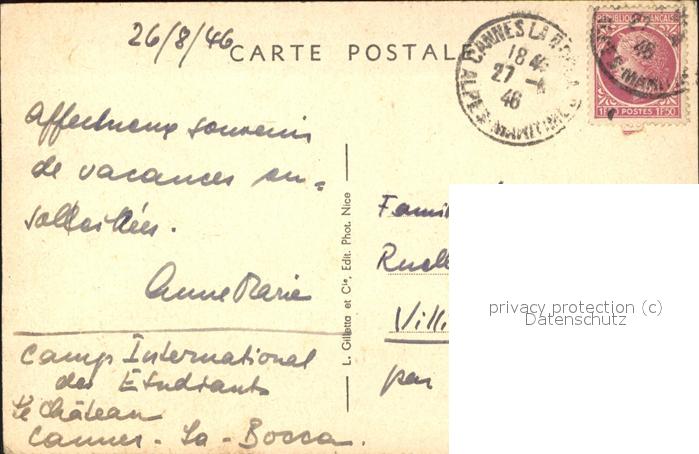 26/8/46
CARTE POSTALE
CANNES LA BOCCA
18 45
27 -8
46
ALPES MARITIMES
REPUBLIQUE FRANÇAISE
1F50 POSTES 1F50
Affectueux souvenirs
de vacances en-
soleillées.
Anne Marie
Camp International
des Etudiants
Le Château
Cannes - La - Bocca.
L. Gilletta et Cie, Edit. Phot. Nice
Famil
Ruell
Villi
par
privacy protection (c)
Datenschutz